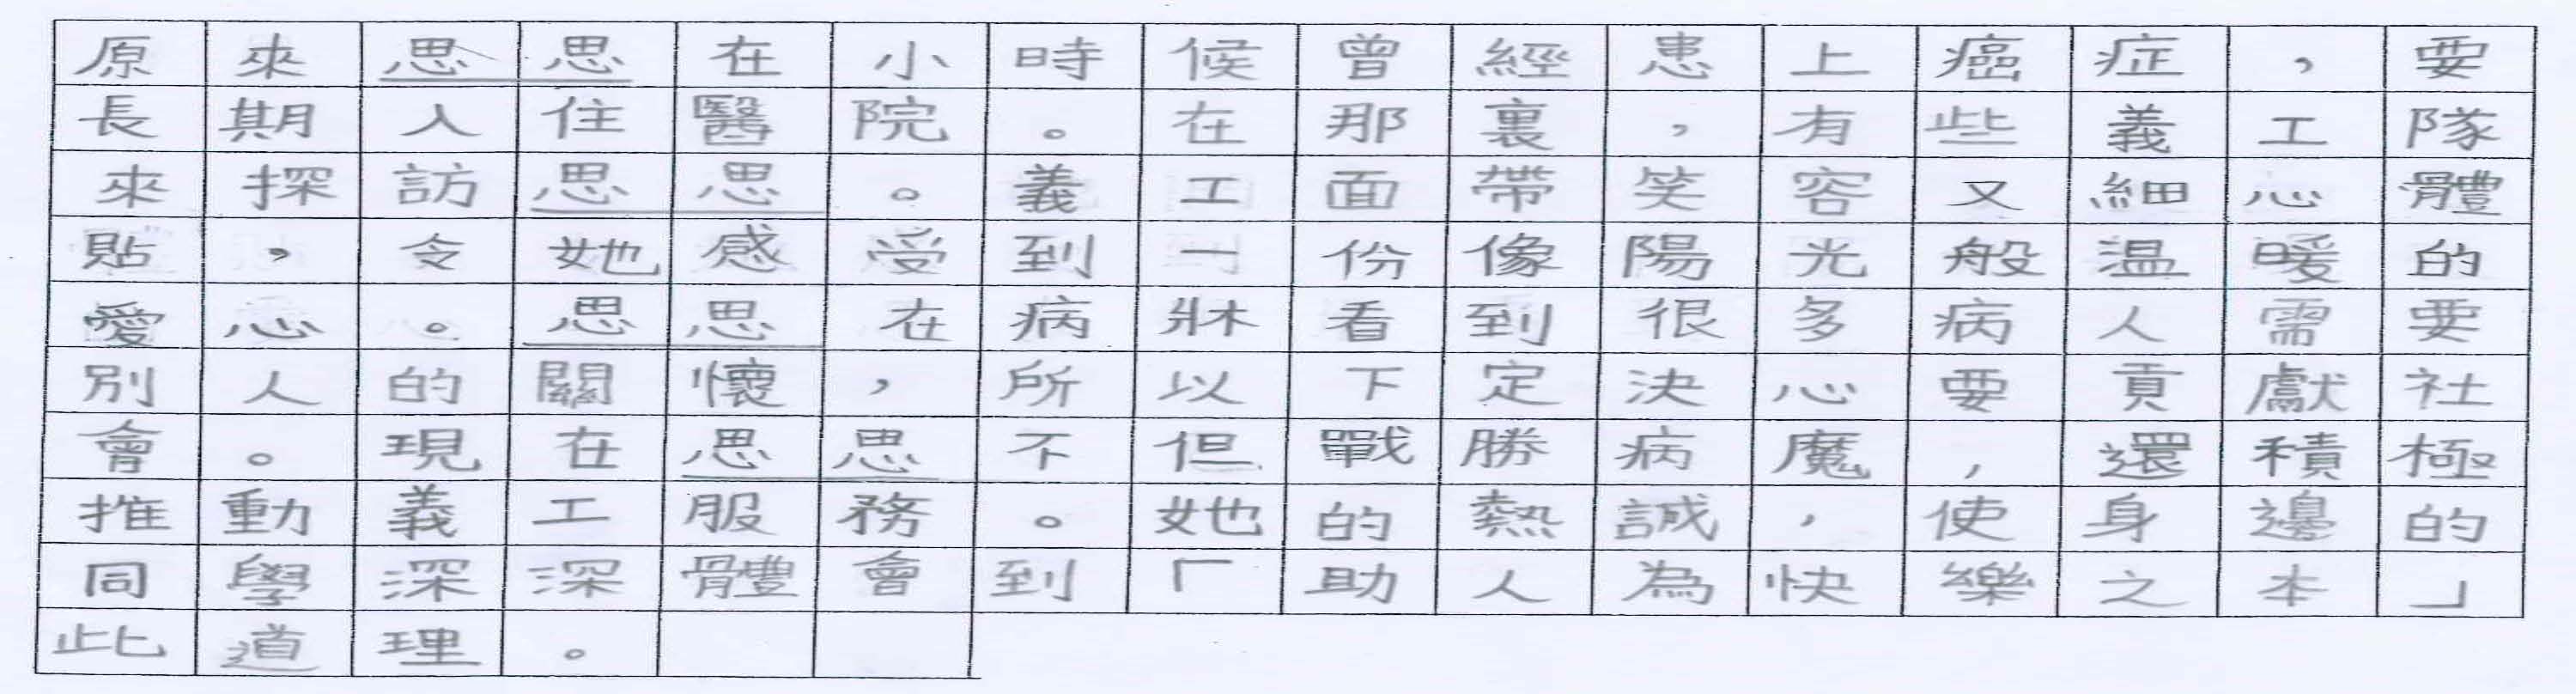 原來思思在小時候曾經患上癌症，要
長期入住醫院。在那裏，有些義工隊
來探訪思思。義工面帶笑容又細心體
貼，令她感受到一份像陽光般温暖的
愛心。思思在病牀看到很多病人需要
別人的關懷，所以下定決心要貢獻社
會。現在思思不但戰勝病魔，還積極
推動義工服務。她的熱誠，使身邊的
同學深深體會到「助人為快樂之本」
此道理。